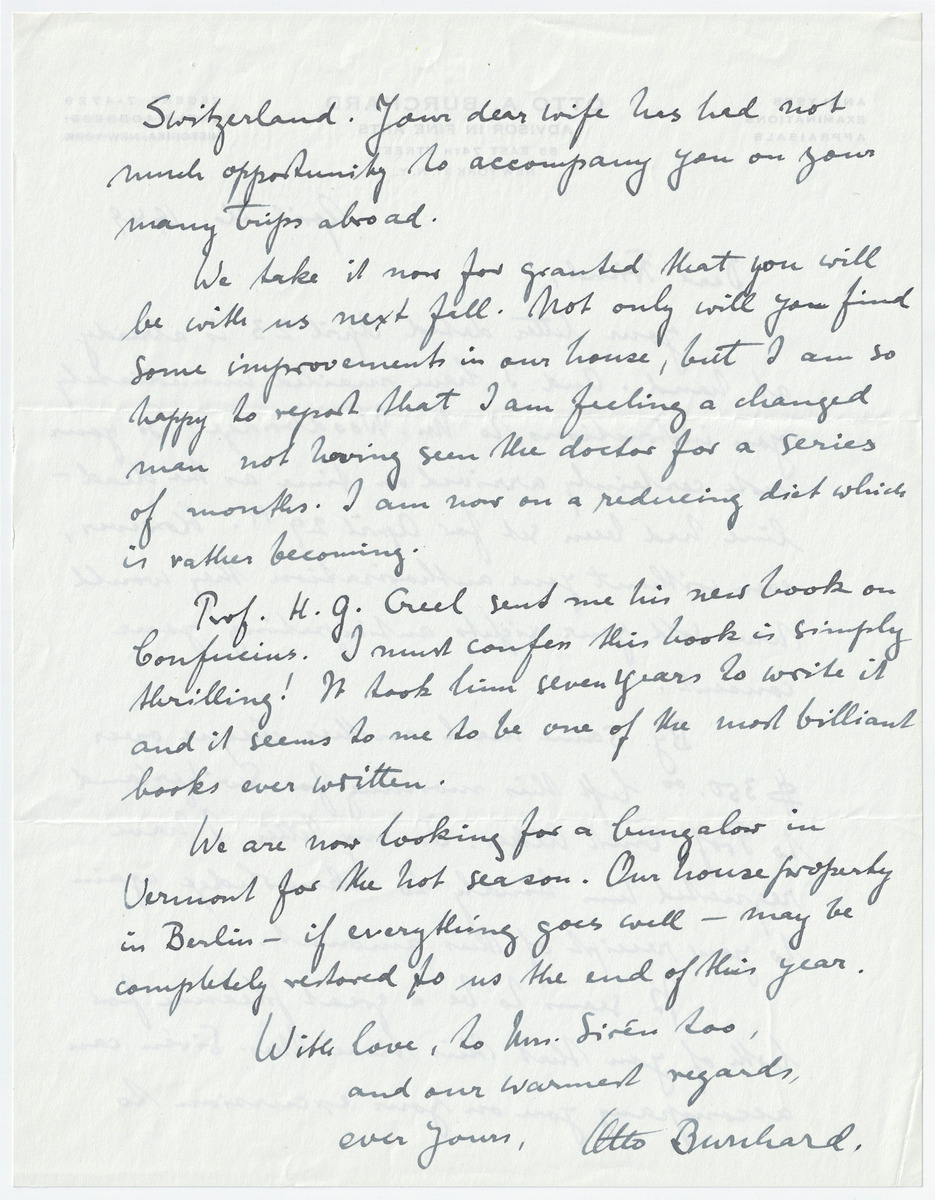 Switzerland. Your dear wife has had not
much opportunity to accompany you on your
many trips abroad.
We take it now for granted that you will
be with us next fall. Not only will you find
some improvements in our house, but I am so
happy to report that I am feeling a changed
man not having seen the doctor for a series
of months. I am now on a reducing diet which
is rather becoming.
Prof. H. G. Creel sent me his new book on
Confucius. I must confess this book is simply
thrilling! It took him seven years to write it
and it seems to me to be one of the most brilliant
books ever written.
We are now looking for a bungalow in
Vermont for the hot season. Our house property
in Berlin – if everything goes well – may be
completely restored to us the end of this year.
With love, to Mrs. Sirén too,
and our warmest regards,
ever yours, Otto Burchard.